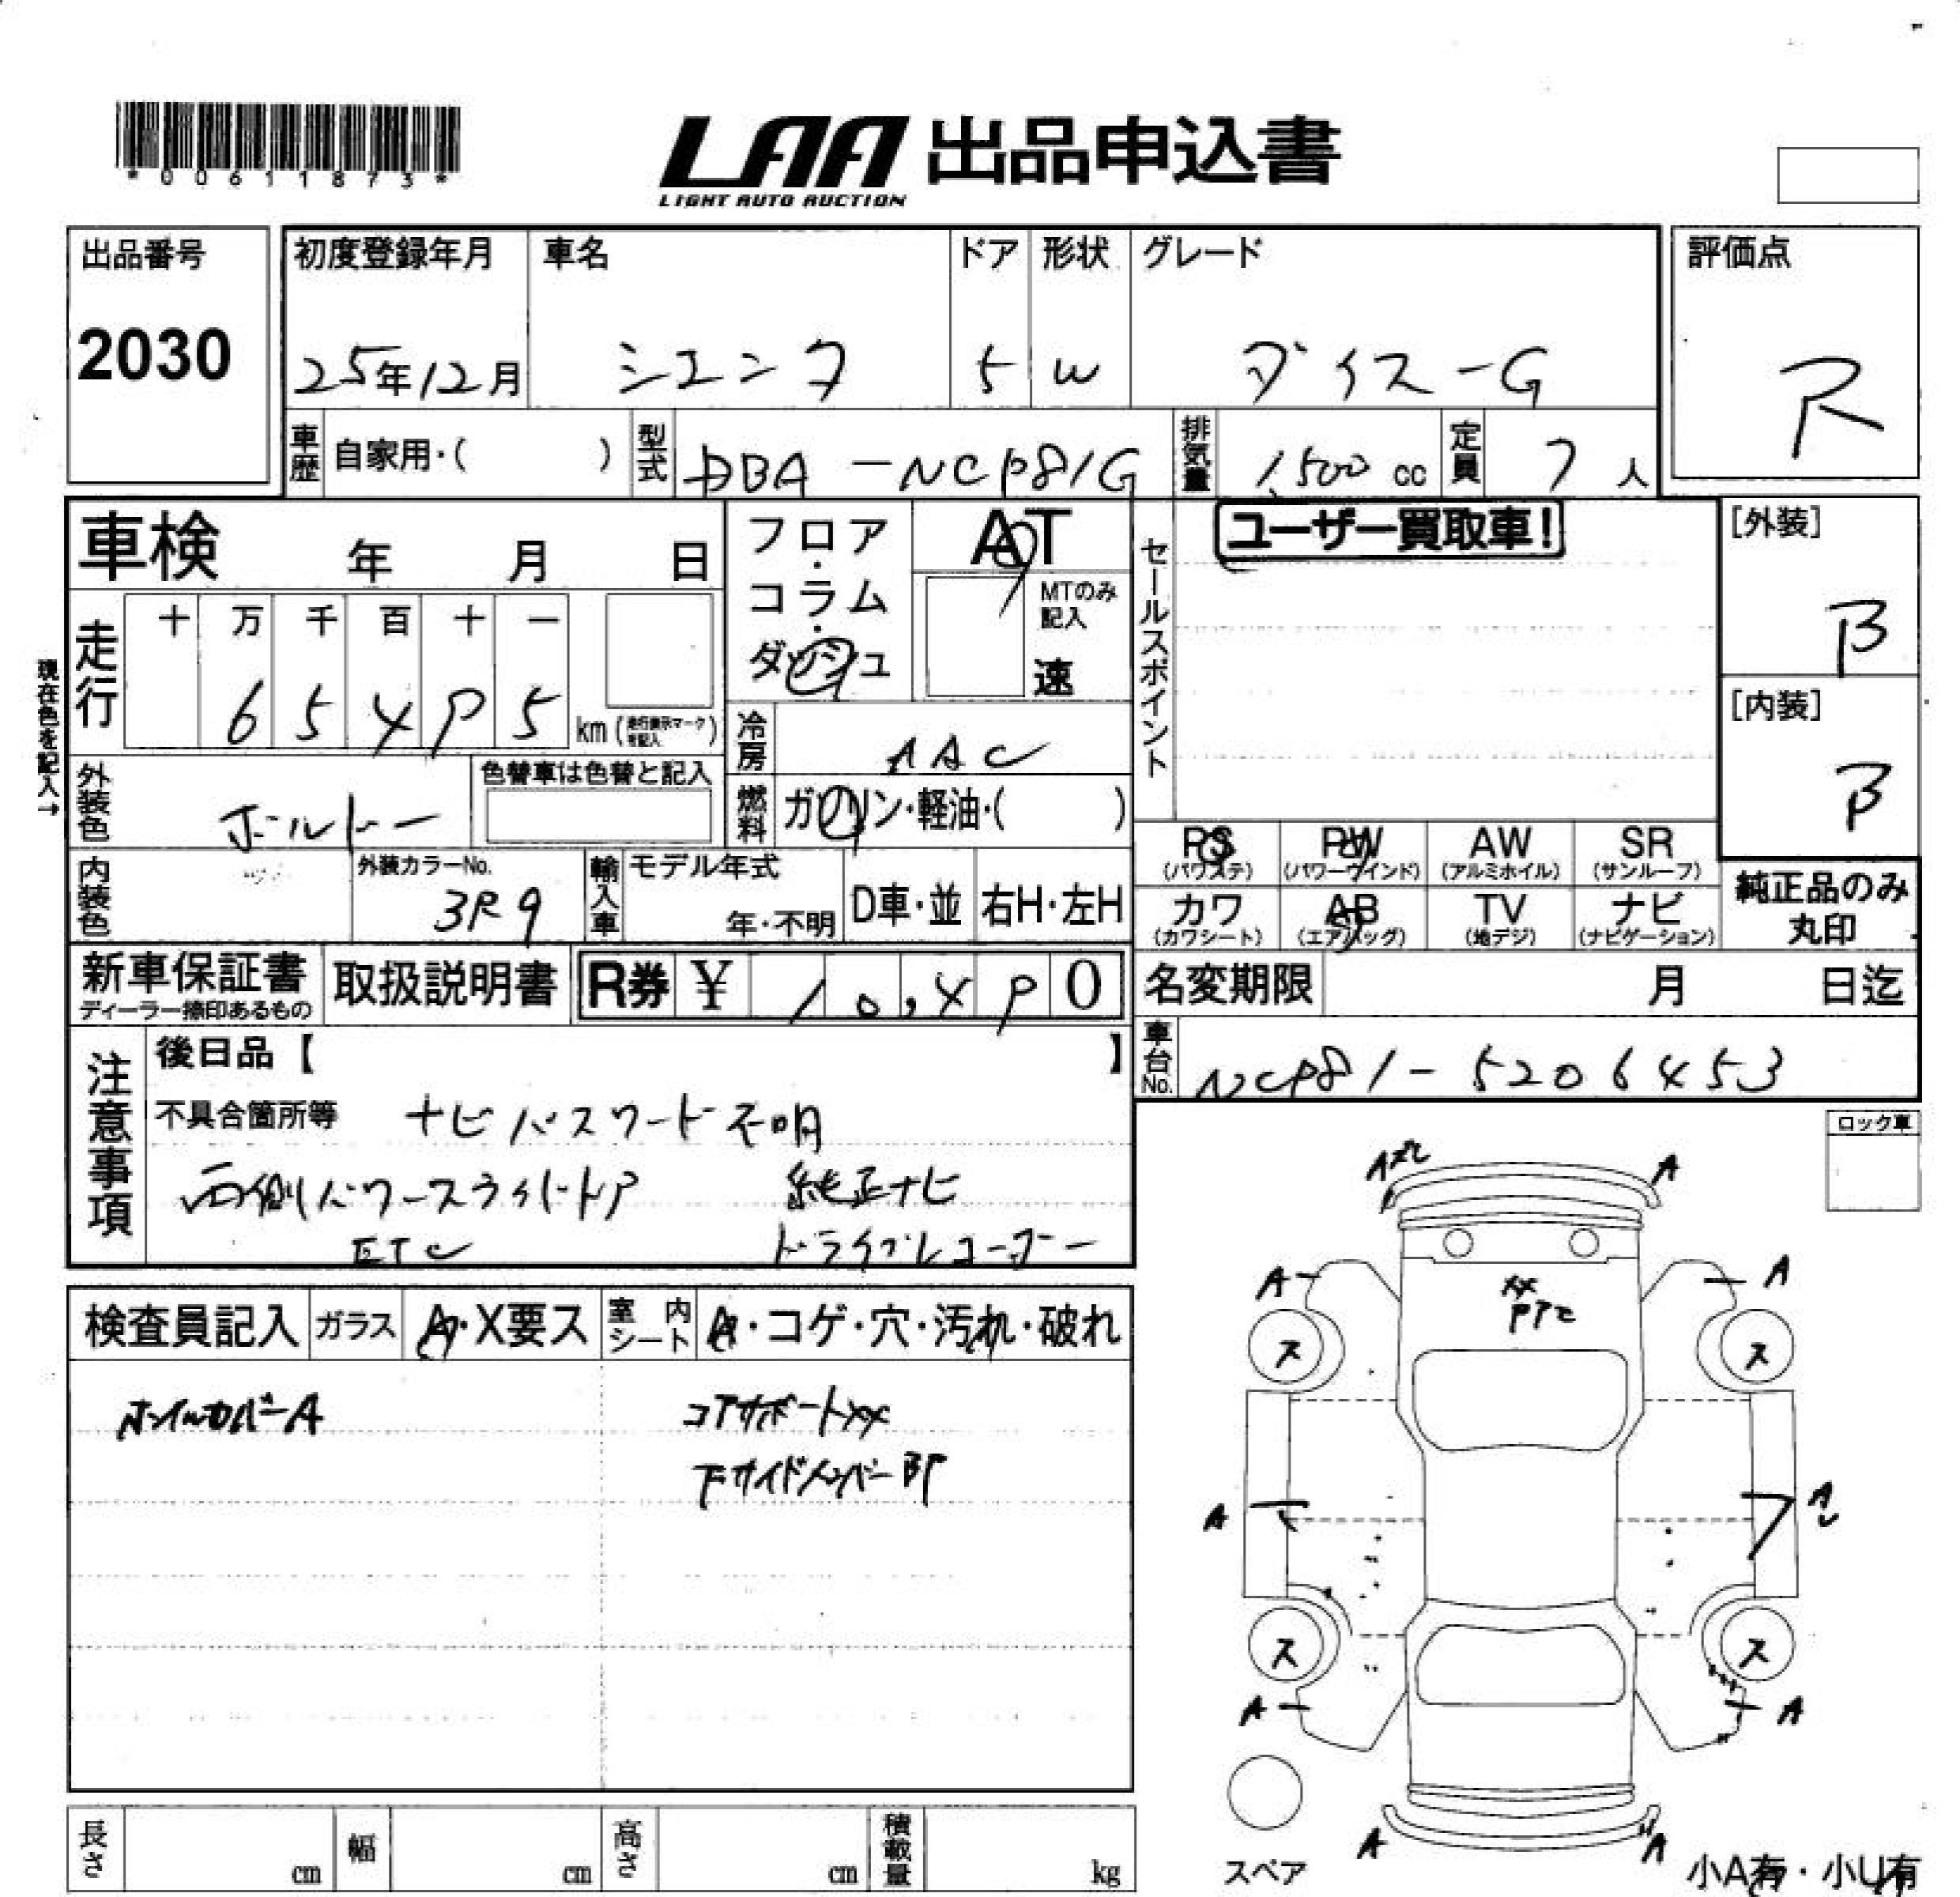 *00611873*
LAA 出品申込書
LIGHT AUTO AUCTION
出品番号 2030
初度登録年月 25年12月
車名 シエンタ
ドア 5
形状 W
グレード ダイス-G
評価点 R
車歴 自家用・( )
型式 DBA-NCP81G
排気量 1,500 cc
定員 7人
車検 年 月 日
フロア・コラム・ダッシュ
AT
MTのみ記入
速
セールスポイント
ユーザー買取車!
[外装] B
[内装] B
現在色を記入→
走行 十 万 千 百 十 一
km
冷房 AAC
外装色 ボルドー
色替車は色替と記入
燃料 ガソリン・軽油・( )
内装色
外装カラーNo. 3R9
輸入車 モデル年式 年・不明
D車・並
右H・左H
PS (パワステ)
PW (パワーウインド)
AW (アルミホイル)
SR (サンルーフ)
カワ (カワシート)
AB (エアバッグ)
TV (地デジ)
ナビ (ナビゲーション)
純正品のみ丸印
新車保証書
ディーラー捺印あるもの
取扱説明書
R券 ¥
名変期限 月 日迄
車台No. NCP81-5206453
注意事項
後日品【 】
不具合箇所等 ナビパスワード不明
両側パワースライドドア 純正ナビ
ETC ドライブレコーダー
ロック車
検査員記入 ガラス A・X要ス 室内シート A・コゲ・穴・汚れ・破れ
ホイルカバーA コアサポートXX
下サイドメンバーBP
A A
A A
XX
ス ス
A A
ス ス
A A
A A
スペア
小A有・小U有
長さ cm
幅 cm
高さ cm
積載量 kg